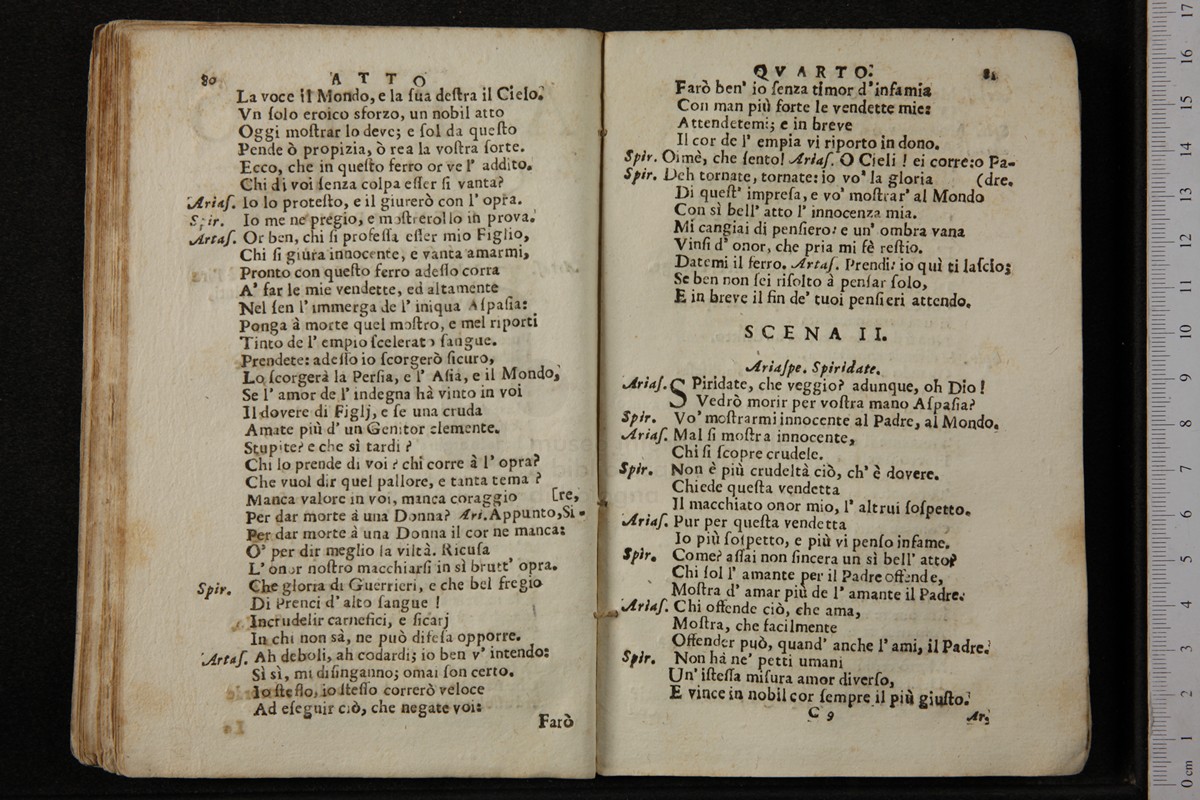 80 ATTO
La voce il Mondo, e la ſua deſtra il Cielo.
Vn ſolo eroico sforzo, un nobil atto
Oggi moſtrar lo deve; e ſol da queſto
Pende ò propizia, ò rea la voſtra ſorte.
Ecco, che in queſto ferro or ve l' addito.
Chi di voi ſenza colpa eſſer ſi vanta?
Ariaſ. Io lo proteſto, e il giurerò con l' opra.
Spir. Io me ne pregio, e moſtrerollo in prova.
Artaſ. Or ben, chi ſi profeſſa eſſer mio Figlio,
Chi ſi giura innocente, e vanta amarmi,
Pronto con queſto ferro adeſſo corra
A' far le mie vendette, ed altamente
Nel ſen l' immerga de l' iniqua Aſpaſia:
Ponga à morte quel moſtro, e mel riporti
Tinto de l' empio ſcelerato ſangue.
Prendete: adeſſo io ſcorgerò ſicuro,
Lo ſcorgerà la Perſia, e l' Aſia, e il Mondo,
Se l' amor de l' indegna hà vinto in voi
Il dovere di Figlj, e ſe una cruda
Amate più d' un Genitor clemente.
Stupite? e che sì tardi ?
Chi lo prende di voi ? chi corre à l' opra?
Che vuol dir quel pallore, e tanta tema ?
Manca valore in voi, manca coraggio [re,
Per dar morte á una Donna? Ari. Appunto, Si-
Per dar morte à una Donna il cor ne manca:
O' per dir meglio la viltà. Ricuſa
L' onor noſtro macchiarſi in sì brutt' opra.
Spir. Che gloria di Guerrieri, e che bel fregio
Di Prenci d' alto ſangue !
Incrudelir carnefici, e ſicarj
In chi non sà, ne può difeſa opporre.
Artaſ. Ah deboli, ah codardi; io ben v' intendo:
Sì sì, mi diſinganno; omai ſon certo.
Io ſteſſo, io ſteſſo correrò veloce
Ad eſeguir ciò, che negate voi:
Farò
QVARTO. 81
Farò ben' io ſenza timor d' infamia
Con man più forte le vendette mie:
Attendetemi; e in breve
Il cor de l' empia vi riporto in dono.
Spir. Oimè, che ſento! Ariaſ. O Cieli ! ei corre: o Pa-
Spir. Deh tornate, tornate: io vo' la gloria (dre.
Di queſt' impreſa, e vo' moſtrar' al Mondo
Con sì bell' atto l' innocenza mia.
Mi cangiai di penſiero: e un' ombra vana
Vinſi d' onor, che pria mi fè reſtio.
Datemi il ferro. Artaſ. Prendi: io quì ti laſcio;
Se ben non ſei riſolto à penſar ſolo,
E in breve il fin de' tuoi penſieri attendo.
SCENA II.
Ariaſpe. Spiridate.
Ariaſ. SPiridate, che veggio? adunque, oh Dio !
Vedrò morir per voſtra mano Aſpaſia?
Spir. Vo' moſtrarmi innocente al Padre, al Mondo.
Ariaſ. Mal ſi moſtra innocente,
Chi ſi ſcopre crudele.
Spir. Non è più crudeltà ciò, ch' è dovere.
Chiede queſta vendetta
Il macchiato onor mio, l' altrui ſoſpetto.
Ariaſ. Pur per queſta vendetta
Io più ſoſpetto, e più vi penſo infame.
Spir. Come? aſſai non ſincera un sì bell' atto?
Chi ſol l' amante per il Padre offende,
Moſtra d' amar più de l' amante il Padre.
Ariaſ. Chi offende ciò, che ama,
Moſtra, che facilmente
Offender può, quand' anche l' ami, il Padre.
Spir. Non há ne' petti umani
Un' iſteſſa miſura amor diverſo,
E vince in nobil cor ſempre il più giuſto.
C 9 Ar.
17
16
15
14
13
12
11
10
9
8
7
6
5
4
3
2
1
0 cm